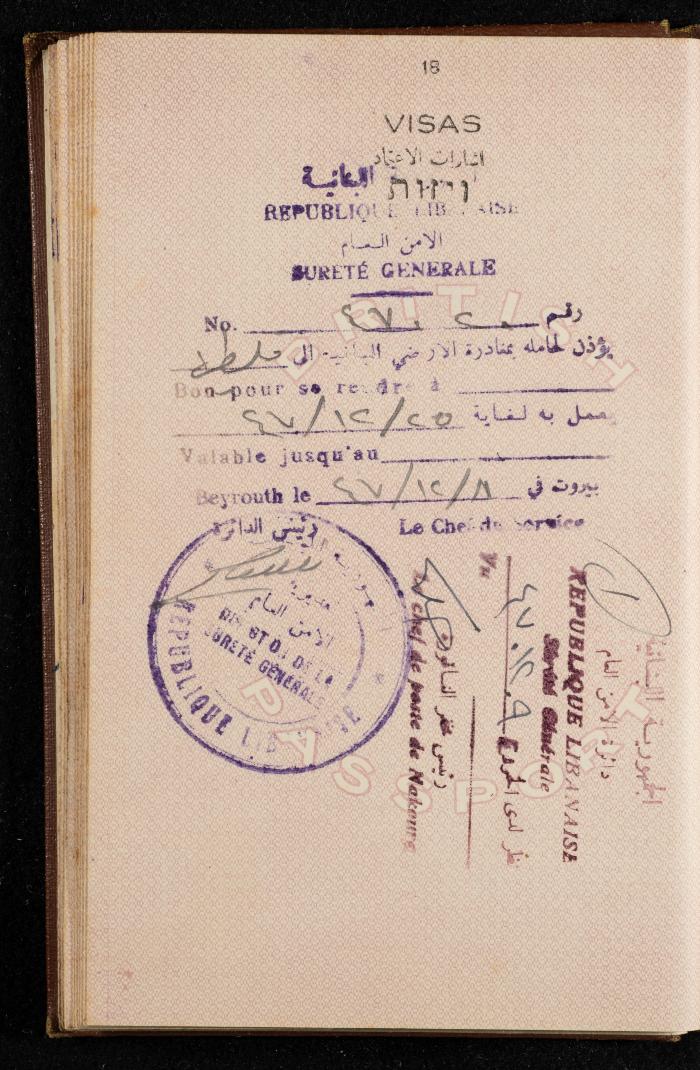 18
VISAS
اشارات الاعتماد
ויזות
REPUBLIQUE LIBANAISE
الامن العام
SURETÉ GENERALE
No. رقم
يؤذن لحامله بمغادرة الارضي اللبنانية الى
Bon pour se rendre à
يعمل به لغاية ٤٧/١٢/٢٥
Valable jusqu'au
Beyrouth le ٤٧/١٢/٨ بيروت في
رئيس الدائرة Le Chef du Service
الامن العام
SURETÉ GÉNÉRALE
REPUBLIQUE LIBANAISE
الجمهورية اللبنانية
دائرة الامن العام
REPUBLIQUE LIBANAISE
Sûreté Générale
نظر لدى الخروج
٤٧.١٢.٩
Vu
رئيس مخفر الناقورة
Le chef de poste de Nakoura
BRITISH
PASSPORT